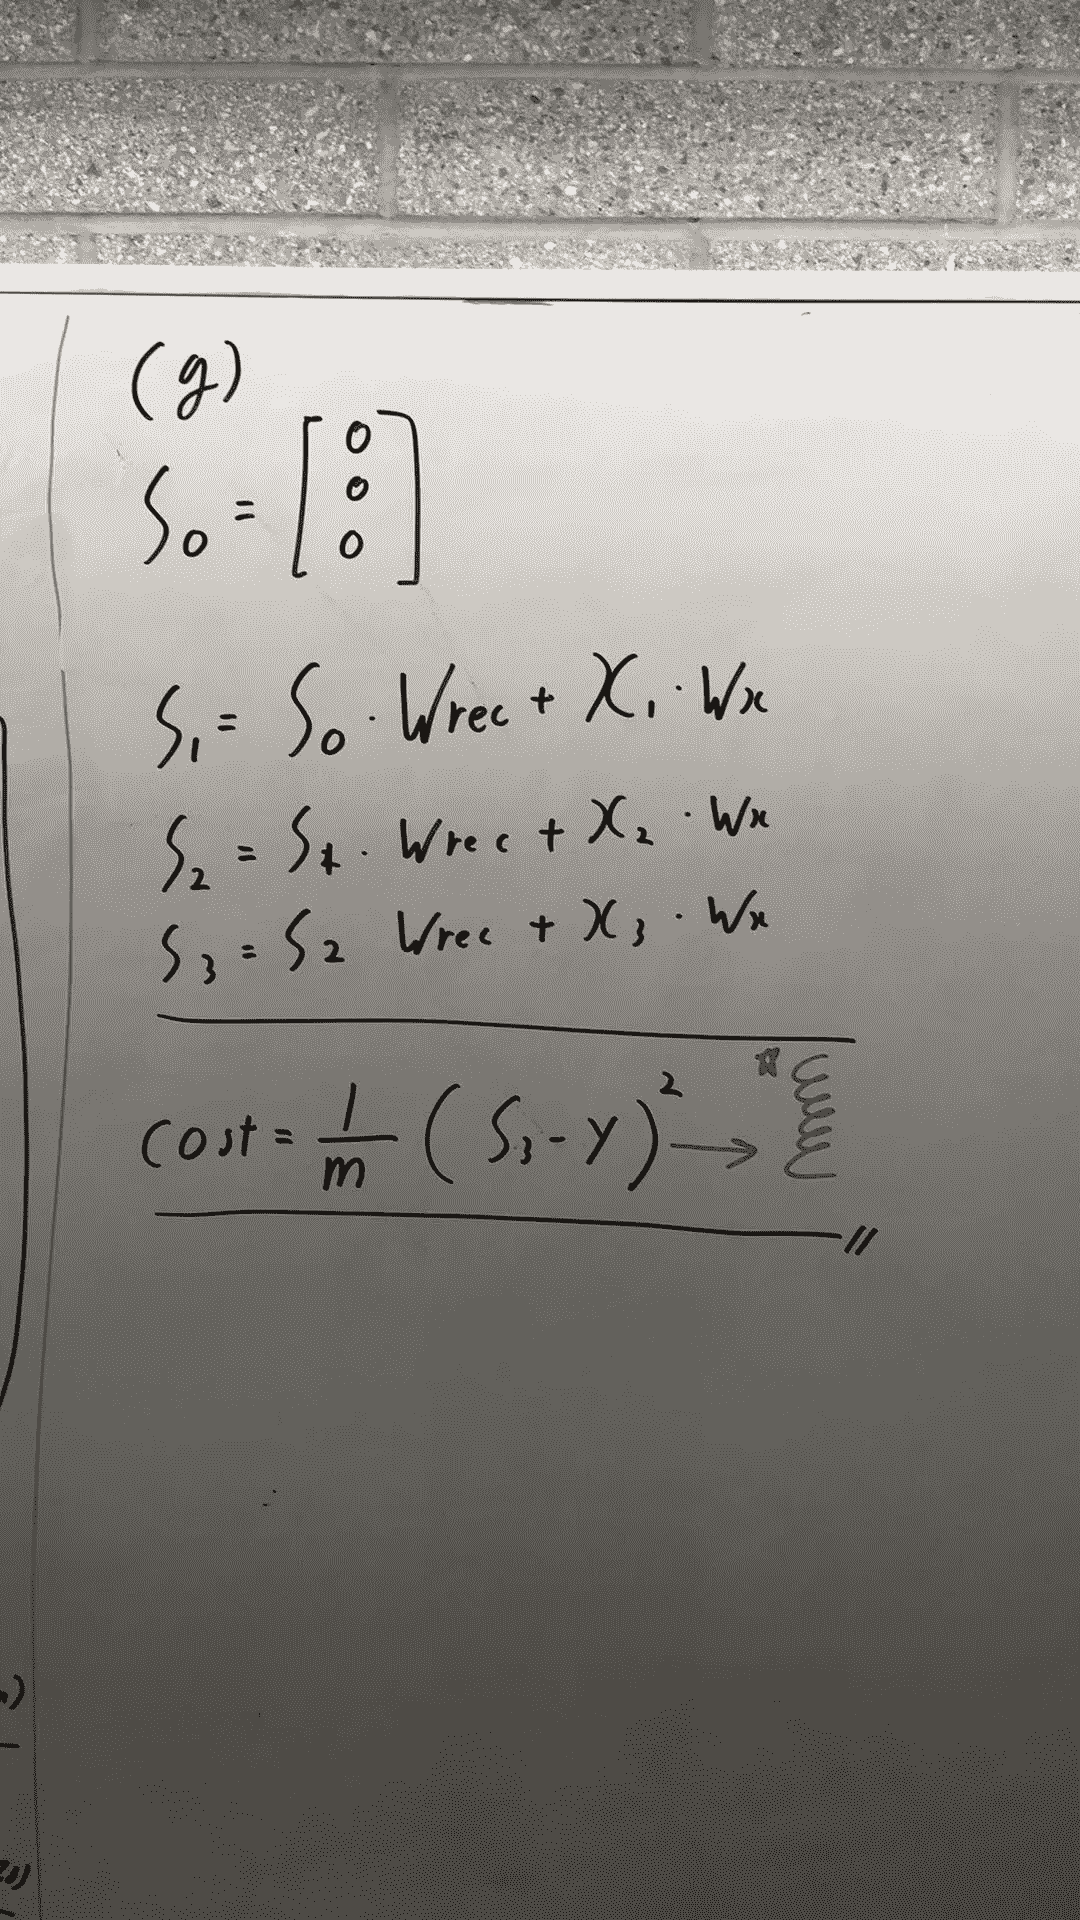 (g)
S₀ = [0 0 0]
S₁ = S₀ · Wrec + X₁ · Wx
S₂ = S₁ · Wrec + X₂ · Wx
S₃ = S₂ Wrec + X₃ · Wx
cost = 1/m (S₃ - y)² →